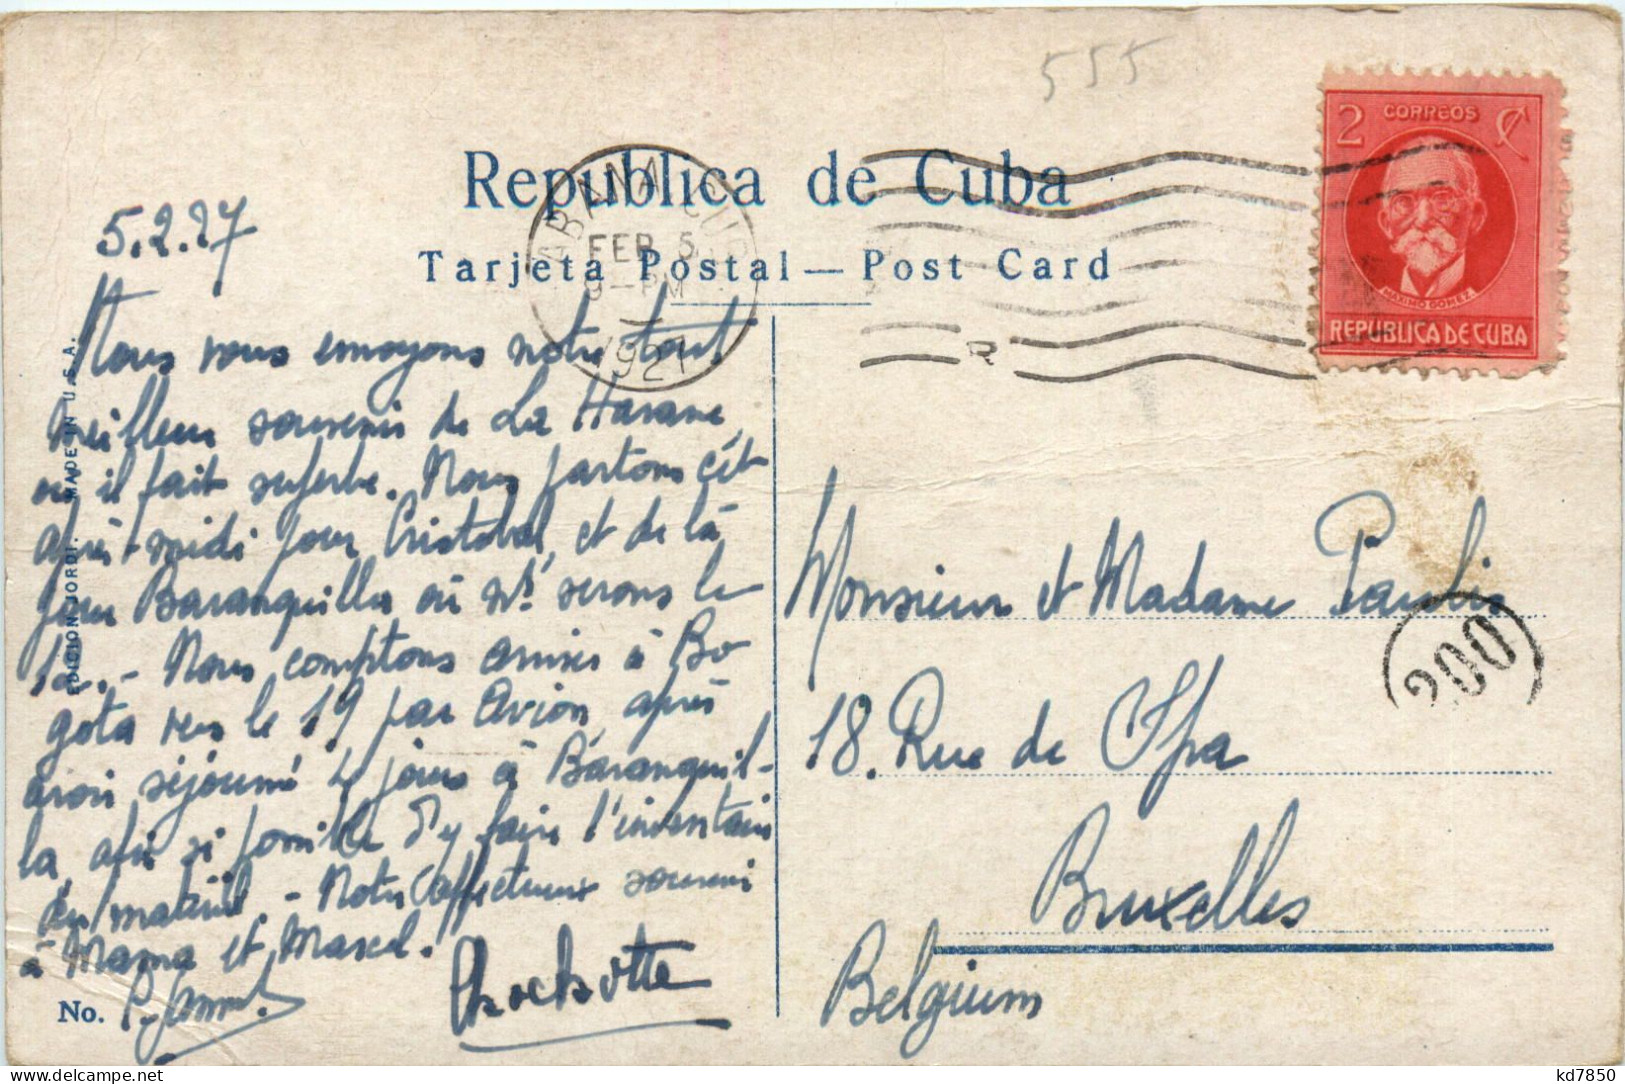 555
2 CORREOS ₵
MAXIMO GOMEZ.
REPUBLICA DE CUBA
Republica de Cuba
Tarjeta Postal — Post Card
HABANA CUBA
FEB 5
9 - PM
1927
R
5.2.27
Nous vous envoyons notre tout
meilleur souvenir de La Havane
où il fait superbe. Nous partons cet
après-midi pour Cristobal, et de là
pour Baranquilla où ns. serons le
12. - Nous comptons arriver à Bo
gota vers le 19 par avion, après
avoir séjourné 4 jours à Baranquil-
la, afin si possible d'y faire l'inventaire
du matériel. - Notre affectueux souvenir
à Mama et Marcel.
Chochotte
No.
EDICION JORDI. MADE IN U.S.A.
Monsieur et Madame Paulis
200
18. Rue de Spa
Bruxelles
Belgium
kd7850